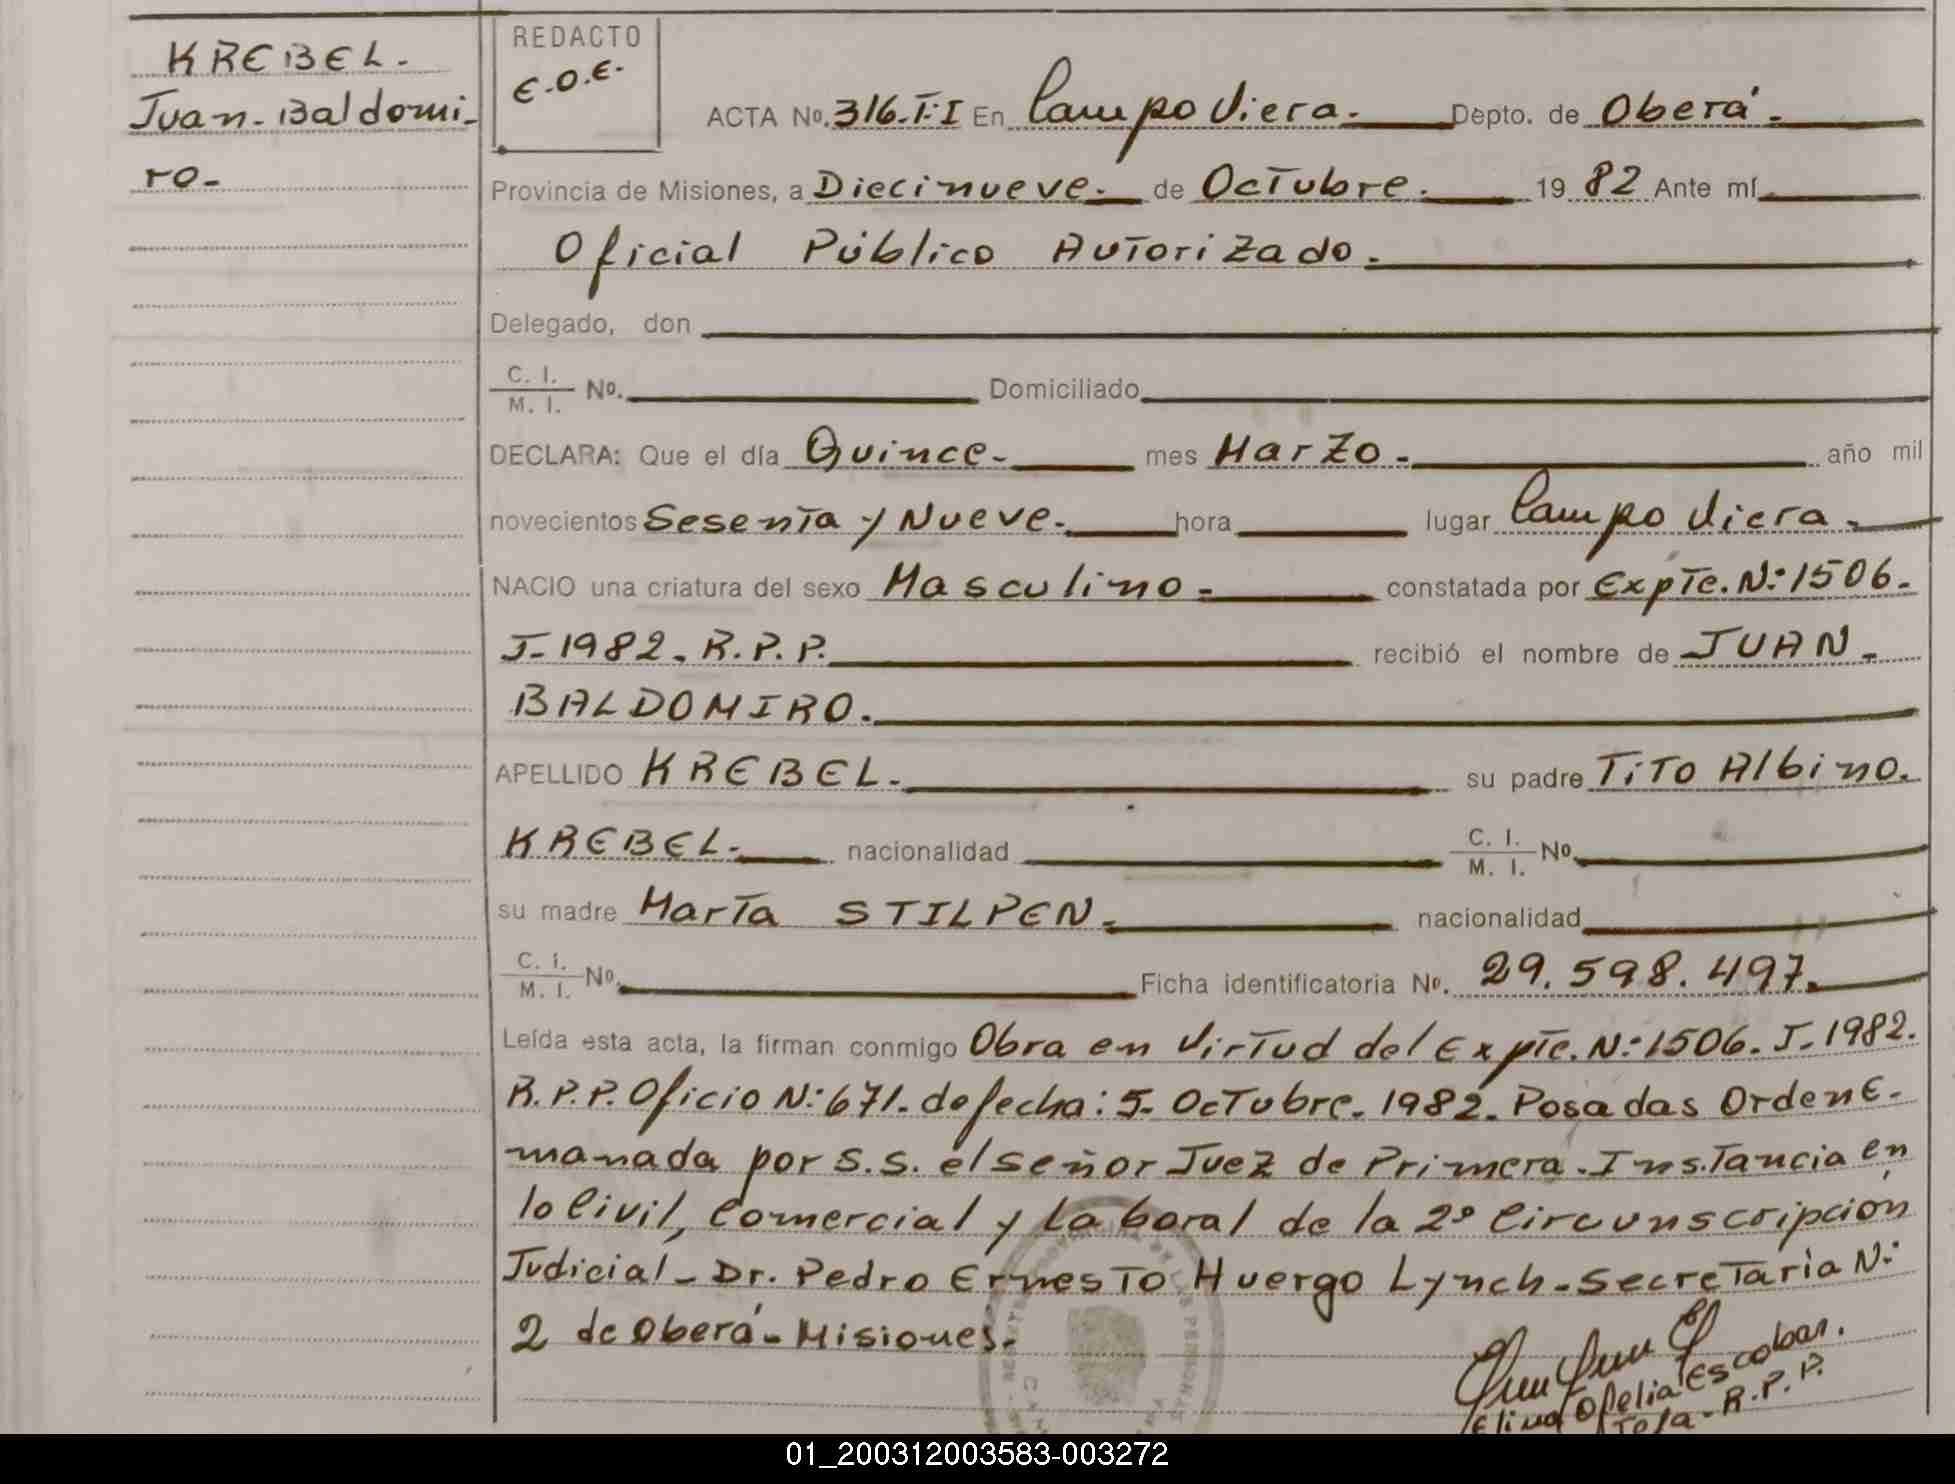 KREBEL.
Juan-Baldomi-
ro-
REDACTO
E.O.E.
ACTA No. 316.T:I En Campo Viera. Depto. de Oberá.
Provincia de Misiones, a Diecinueve. de Octubre. 19 82 Ante mí
Oficial Público Autorizado.
Delegado, don
C. I.
M. I. No. Domiciliado
DECLARA: Que el día Quince- mes Marzo- año mil
novecientos Sesenta y Nueve. hora lugar Campo Viera-
NACIO una criatura del sexo Masculino- constatada por Expte. N:1506.
J-1982. R.P.P. recibió el nombre de JUAN-
BALDOMIRO.
APELLIDO KREBEL. su padre Tito Albino.
KREBEL. nacionalidad C. I.
M. I. No.
su madre María STILPEN. nacionalidad
C. I.
M. I. No. Ficha identificatoria No. 29.598.497.
Leída esta acta, la firman conmigo Obra en Virtud del Expte. N:1506. J-1982.
R.P.P. Oficio N:671. de fecha: 5- Octubre. 1982. Posadas Orden E-
manada por S.S. el señor Juez de Primera-Instancia en
lo Civil, Comercial y Laboral de la 2º Circunscripción
Judicial- Dr. Pedro Ernesto Huergo Lynch-Secretaría N:
2 de Oberá-Misiones.
Elina Ofelia Escobar.
Jefa-R.P.P.
01_200312003583-003272